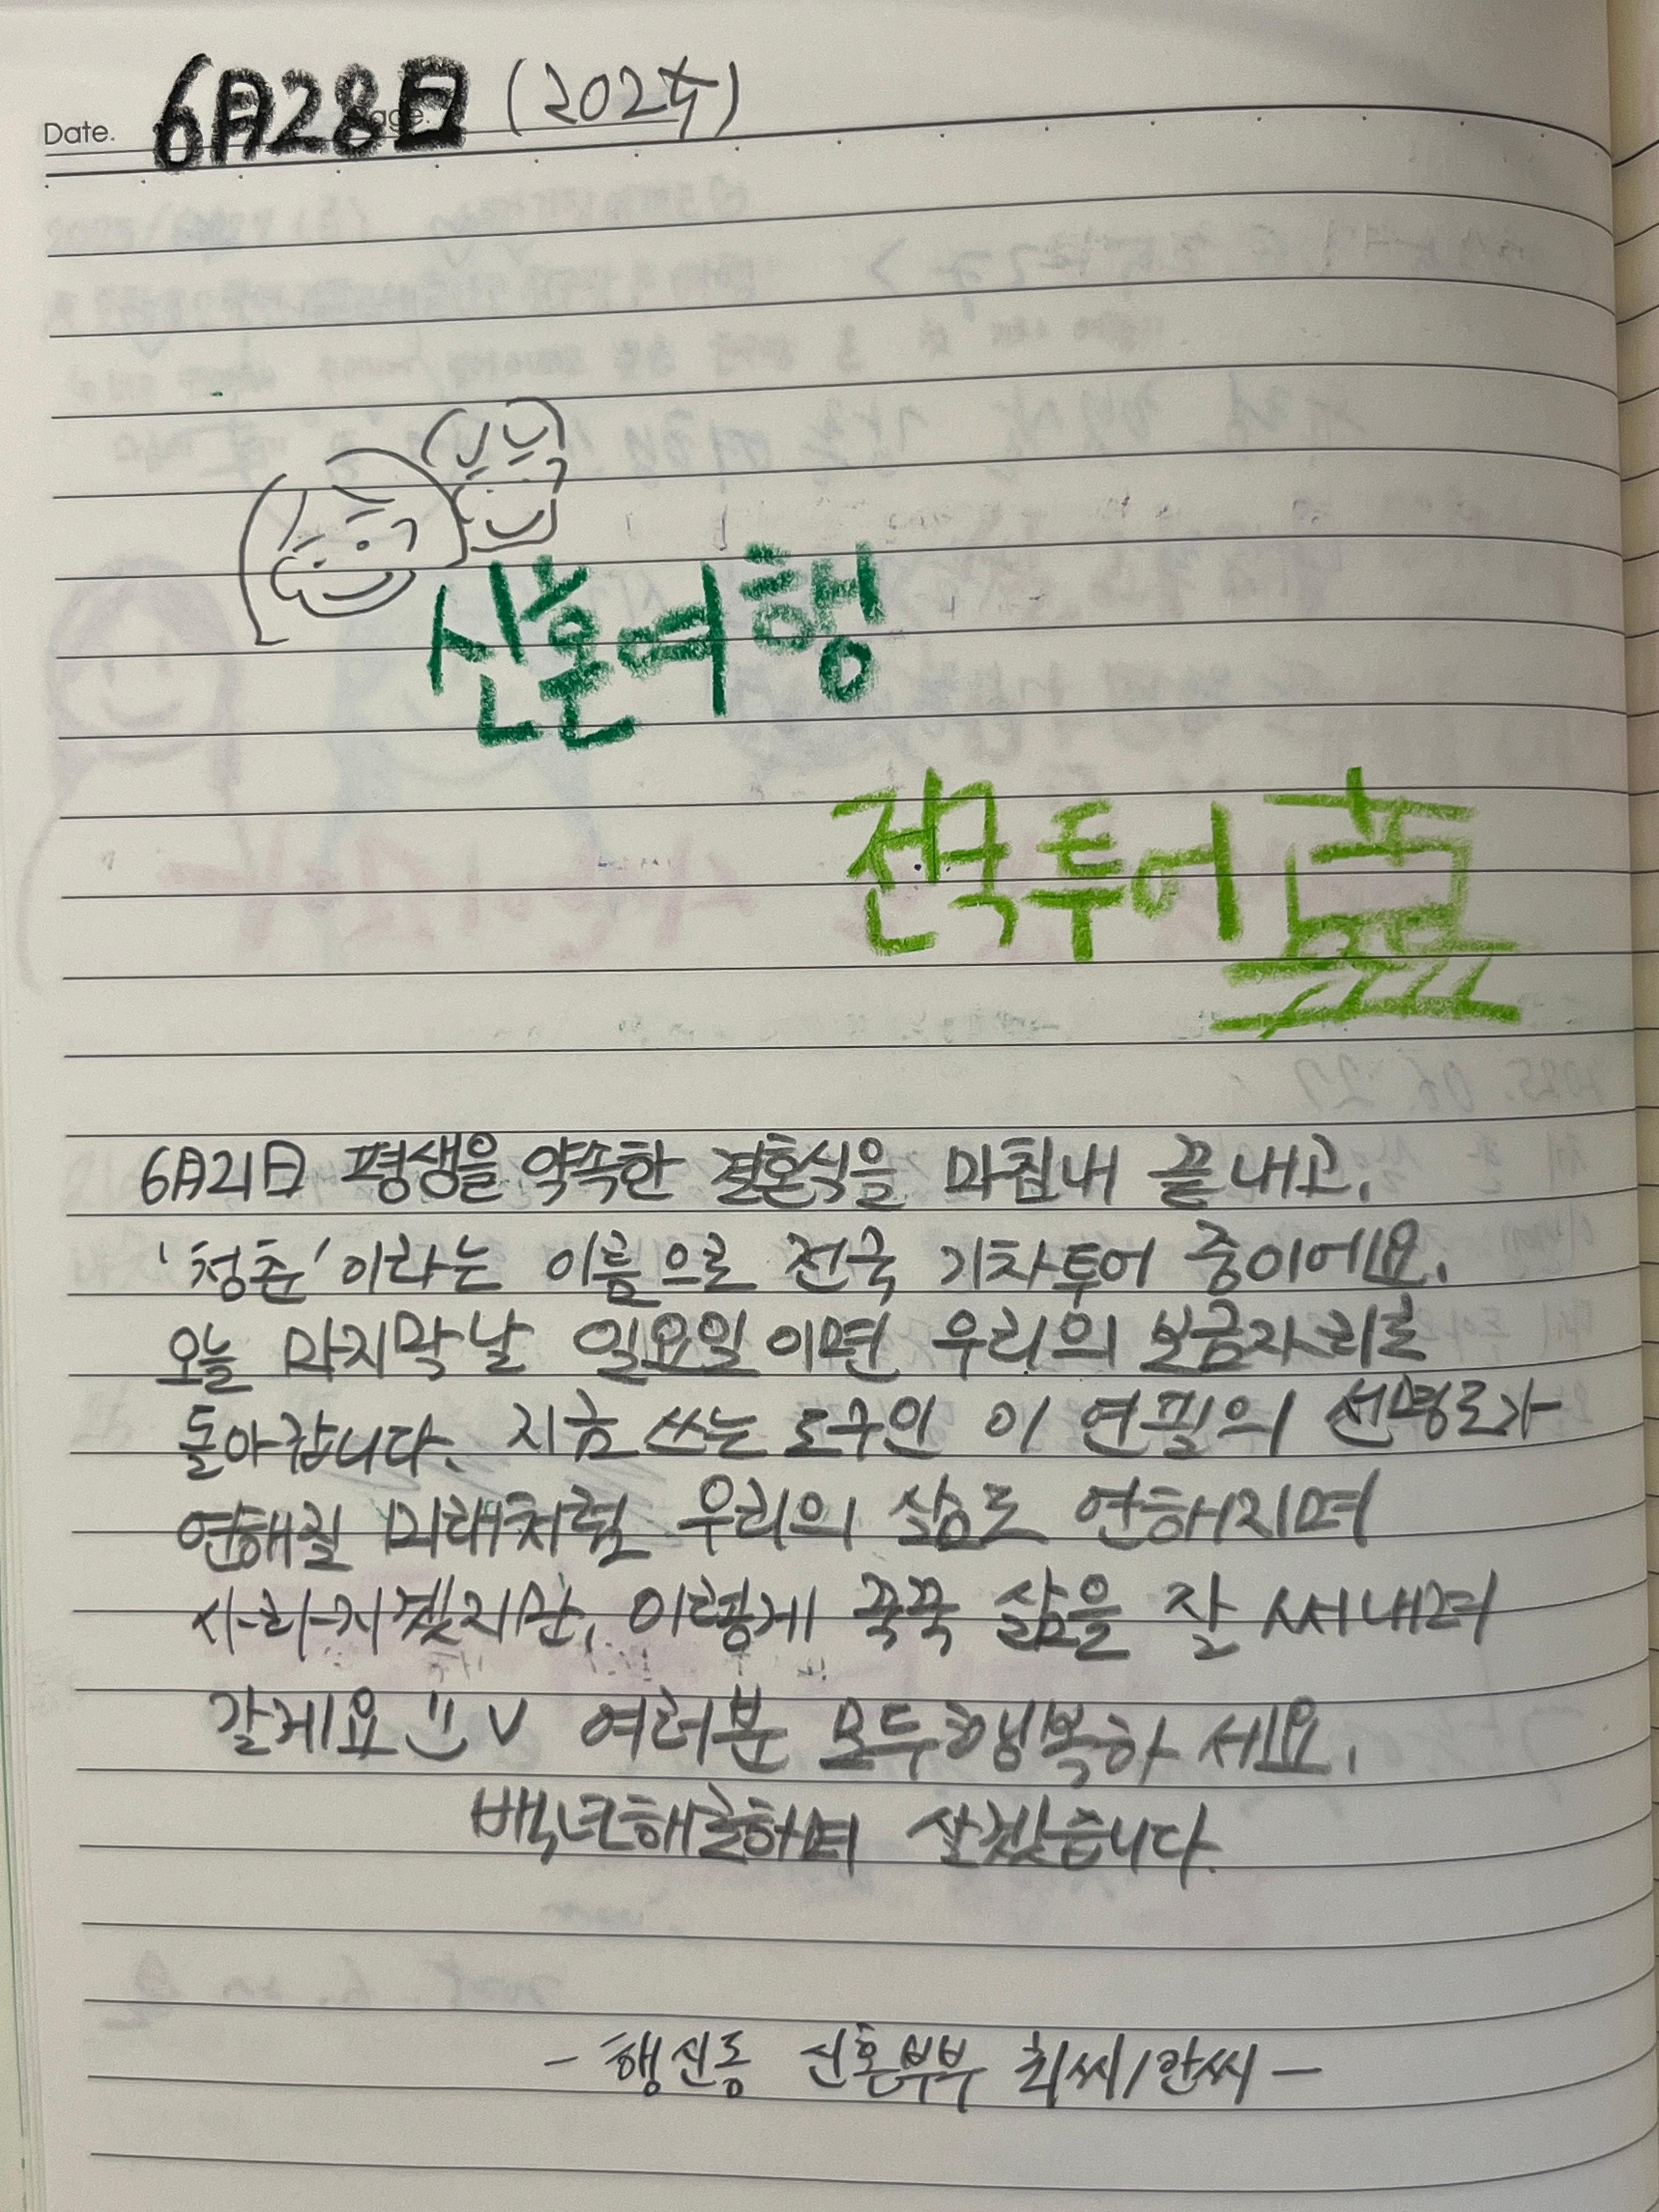 Date.
6月28日
6月21日 평생을 약속한 결혼식을 마침내 끝내고,
'청춘'이라는 이름으로 전국 기차투어 중이에요.
오늘 마지막날 일요일이면 우리의 보금자리로
돌아갑니다. 지금 쓰는 도구인 이 연필의 선명도가
연해질 미래처럼 우리의 삶도 연해지며
사라지겠지만, 이렇게 꾹꾹 삶을 잘 써내려
갈게요 :) V 여러분 모두 행복하세요.
백년해로하며 살겠습니다.
신혼여행
전국투어
- 행신동 신혼부부 최씨/안씨 -